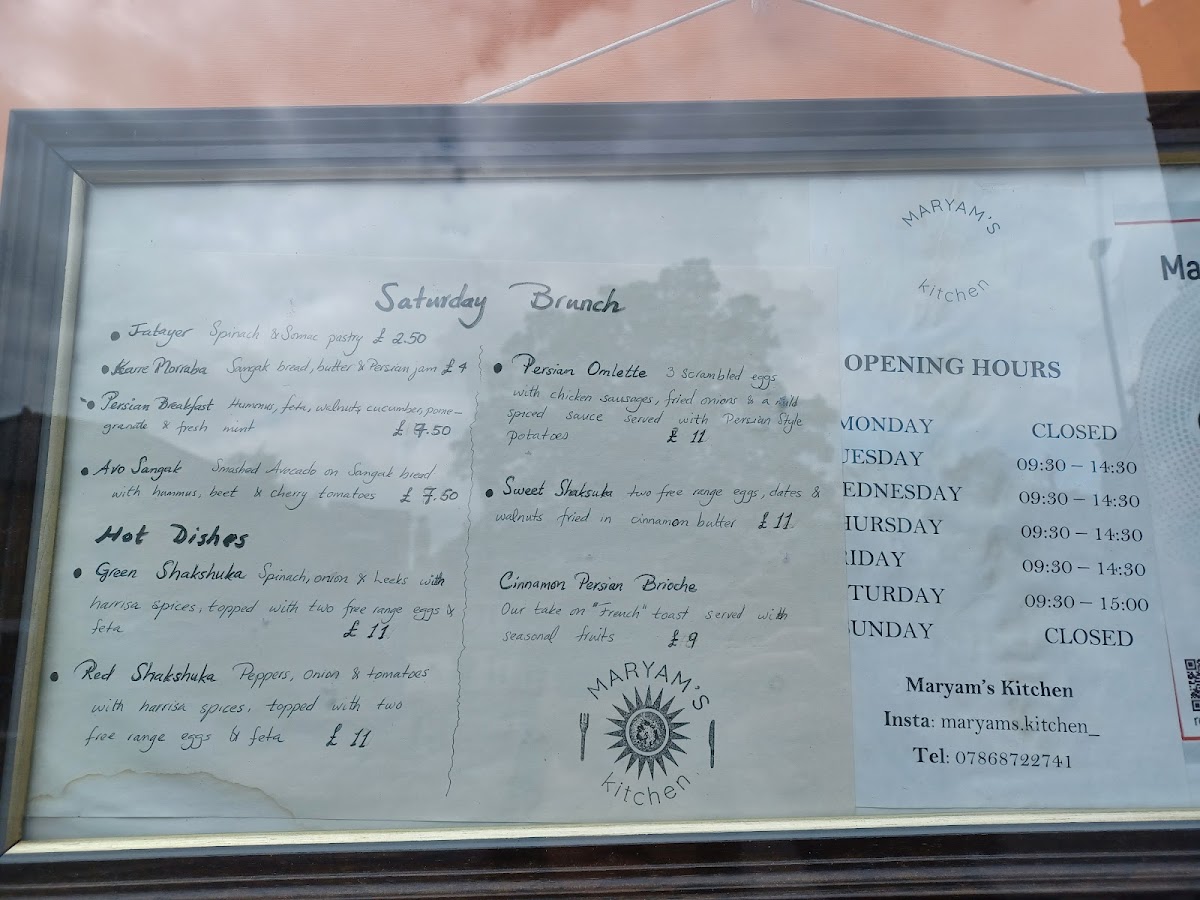 Saturday Brunch
Fatayer Spinach & Somac pastry £ 2.50
Karre Morraba Sangak bread, butter & Persian jam £4
Persian Breakfast Hummus, feta, walnuts, cucumber, pome-
granate & fresh mint £ 7.50
Avo Sangak Smashed Avocado on Sangak bread
with hummus, beet & cherry tomatoes £ 7.50
Hot Dishes
Green Shakshuka Spinach, onion & Leeks with
harrisa spices, topped with two free range eggs &
feta £ 11
Red Shakshuka Peppers, onion & tomatoes
with harrisa spices, topped with two
free range eggs & feta £ 11
Persian Omlette 3 scrambled eggs
with chicken sausages, fried onions & a mild
spiced sauce served with Persian Style
potatoes £ 11
Sweet Shaksuka two free range eggs, dates &
walnuts fried in cinnamon butter £11
Cinnamon Persian Brioche
Our take on "French" toast served with
seasonal fruits £9
MARYAM'S
kitchen
MARYAM'S
kitchen
OPENING HOURS
MONDAY CLOSED
UESDAY 09:30 – 14:30
EDNESDAY 09:30 – 14:30
HURSDAY 09:30 – 14:30
RIDAY 09:30 – 14:30
TURDAY 09:30 – 15:00
SUNDAY CLOSED
Maryam's Kitchen
Insta: maryams.kitchen_
Tel: 07868722741
Ma